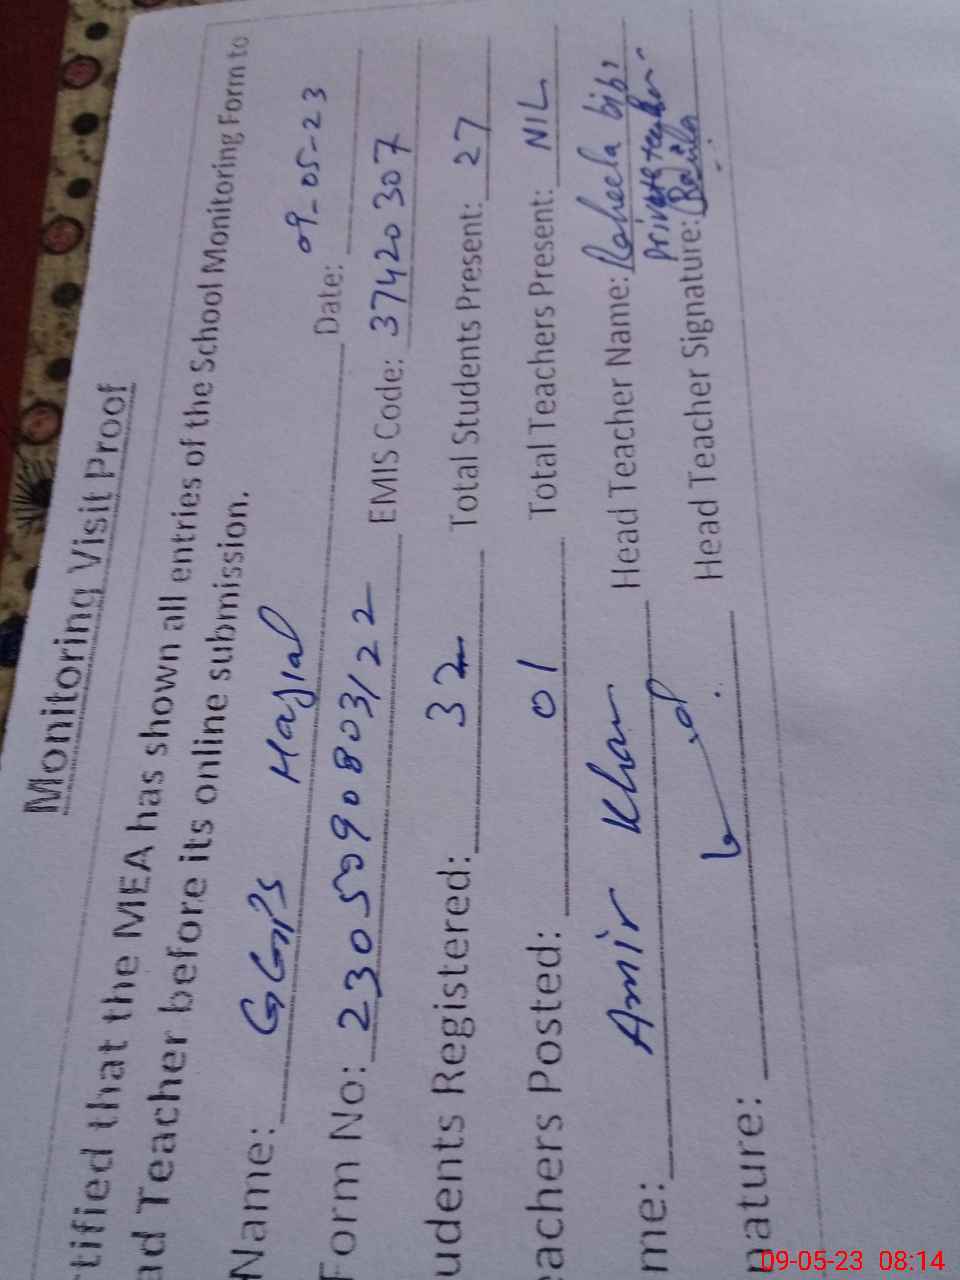 Monitoring Visit Proof
rtified that the MEA has shown all entries of the School Monitoring Form to
ad Teacher before its online submission.
Name: GGPS Hasial Date: 09-05-23
Form No: 2305090803122 EMIS Code: 37420307
udents Registered: 32 Total Students Present: 27
eachers Posted: 01 Total Teachers Present: NIL
me: Amir Khan Head Teacher Name: Raheela bibi
private teacher
nature: Head Teacher Signature:
09-05-23 08:14